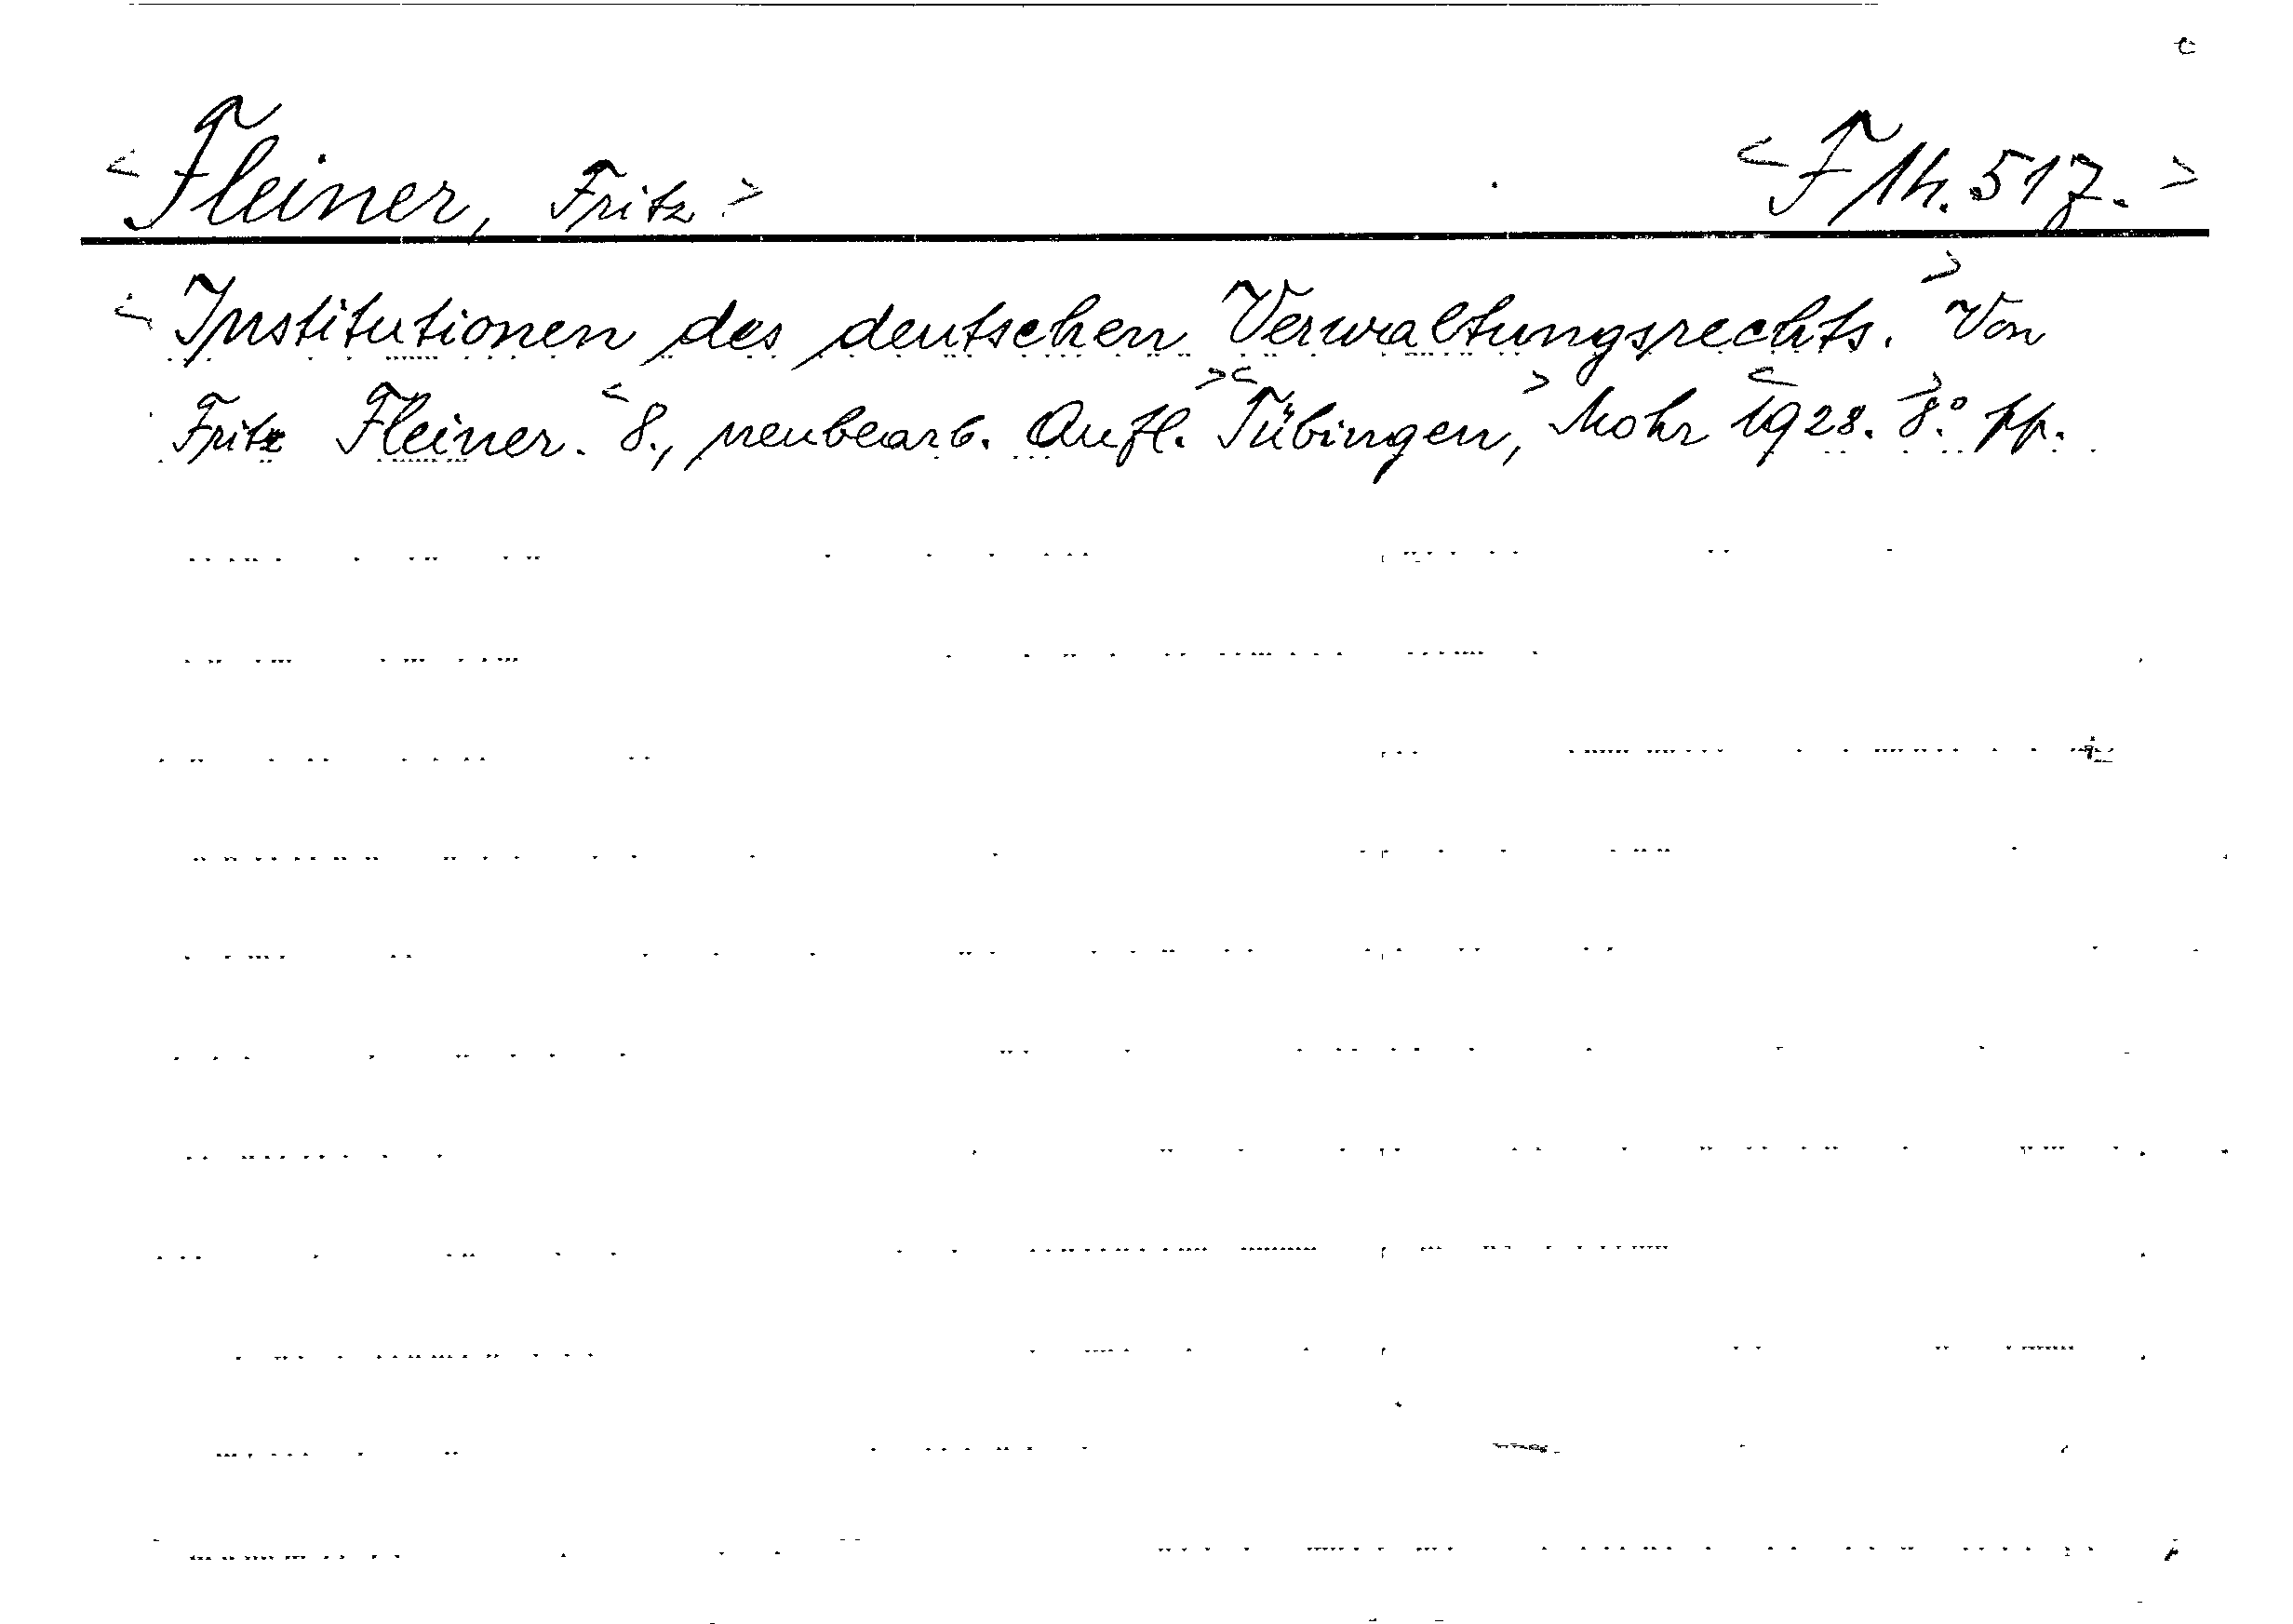 c
< Fleiner, Fritz > < F 14.517. >
< Institutionen des deutschen Verwaltungsrechts. > Von
Fritz Fleiner. < 8., neubearb. Aufl. > < Tübingen, > Mohr < 1928. > 8.° pp.